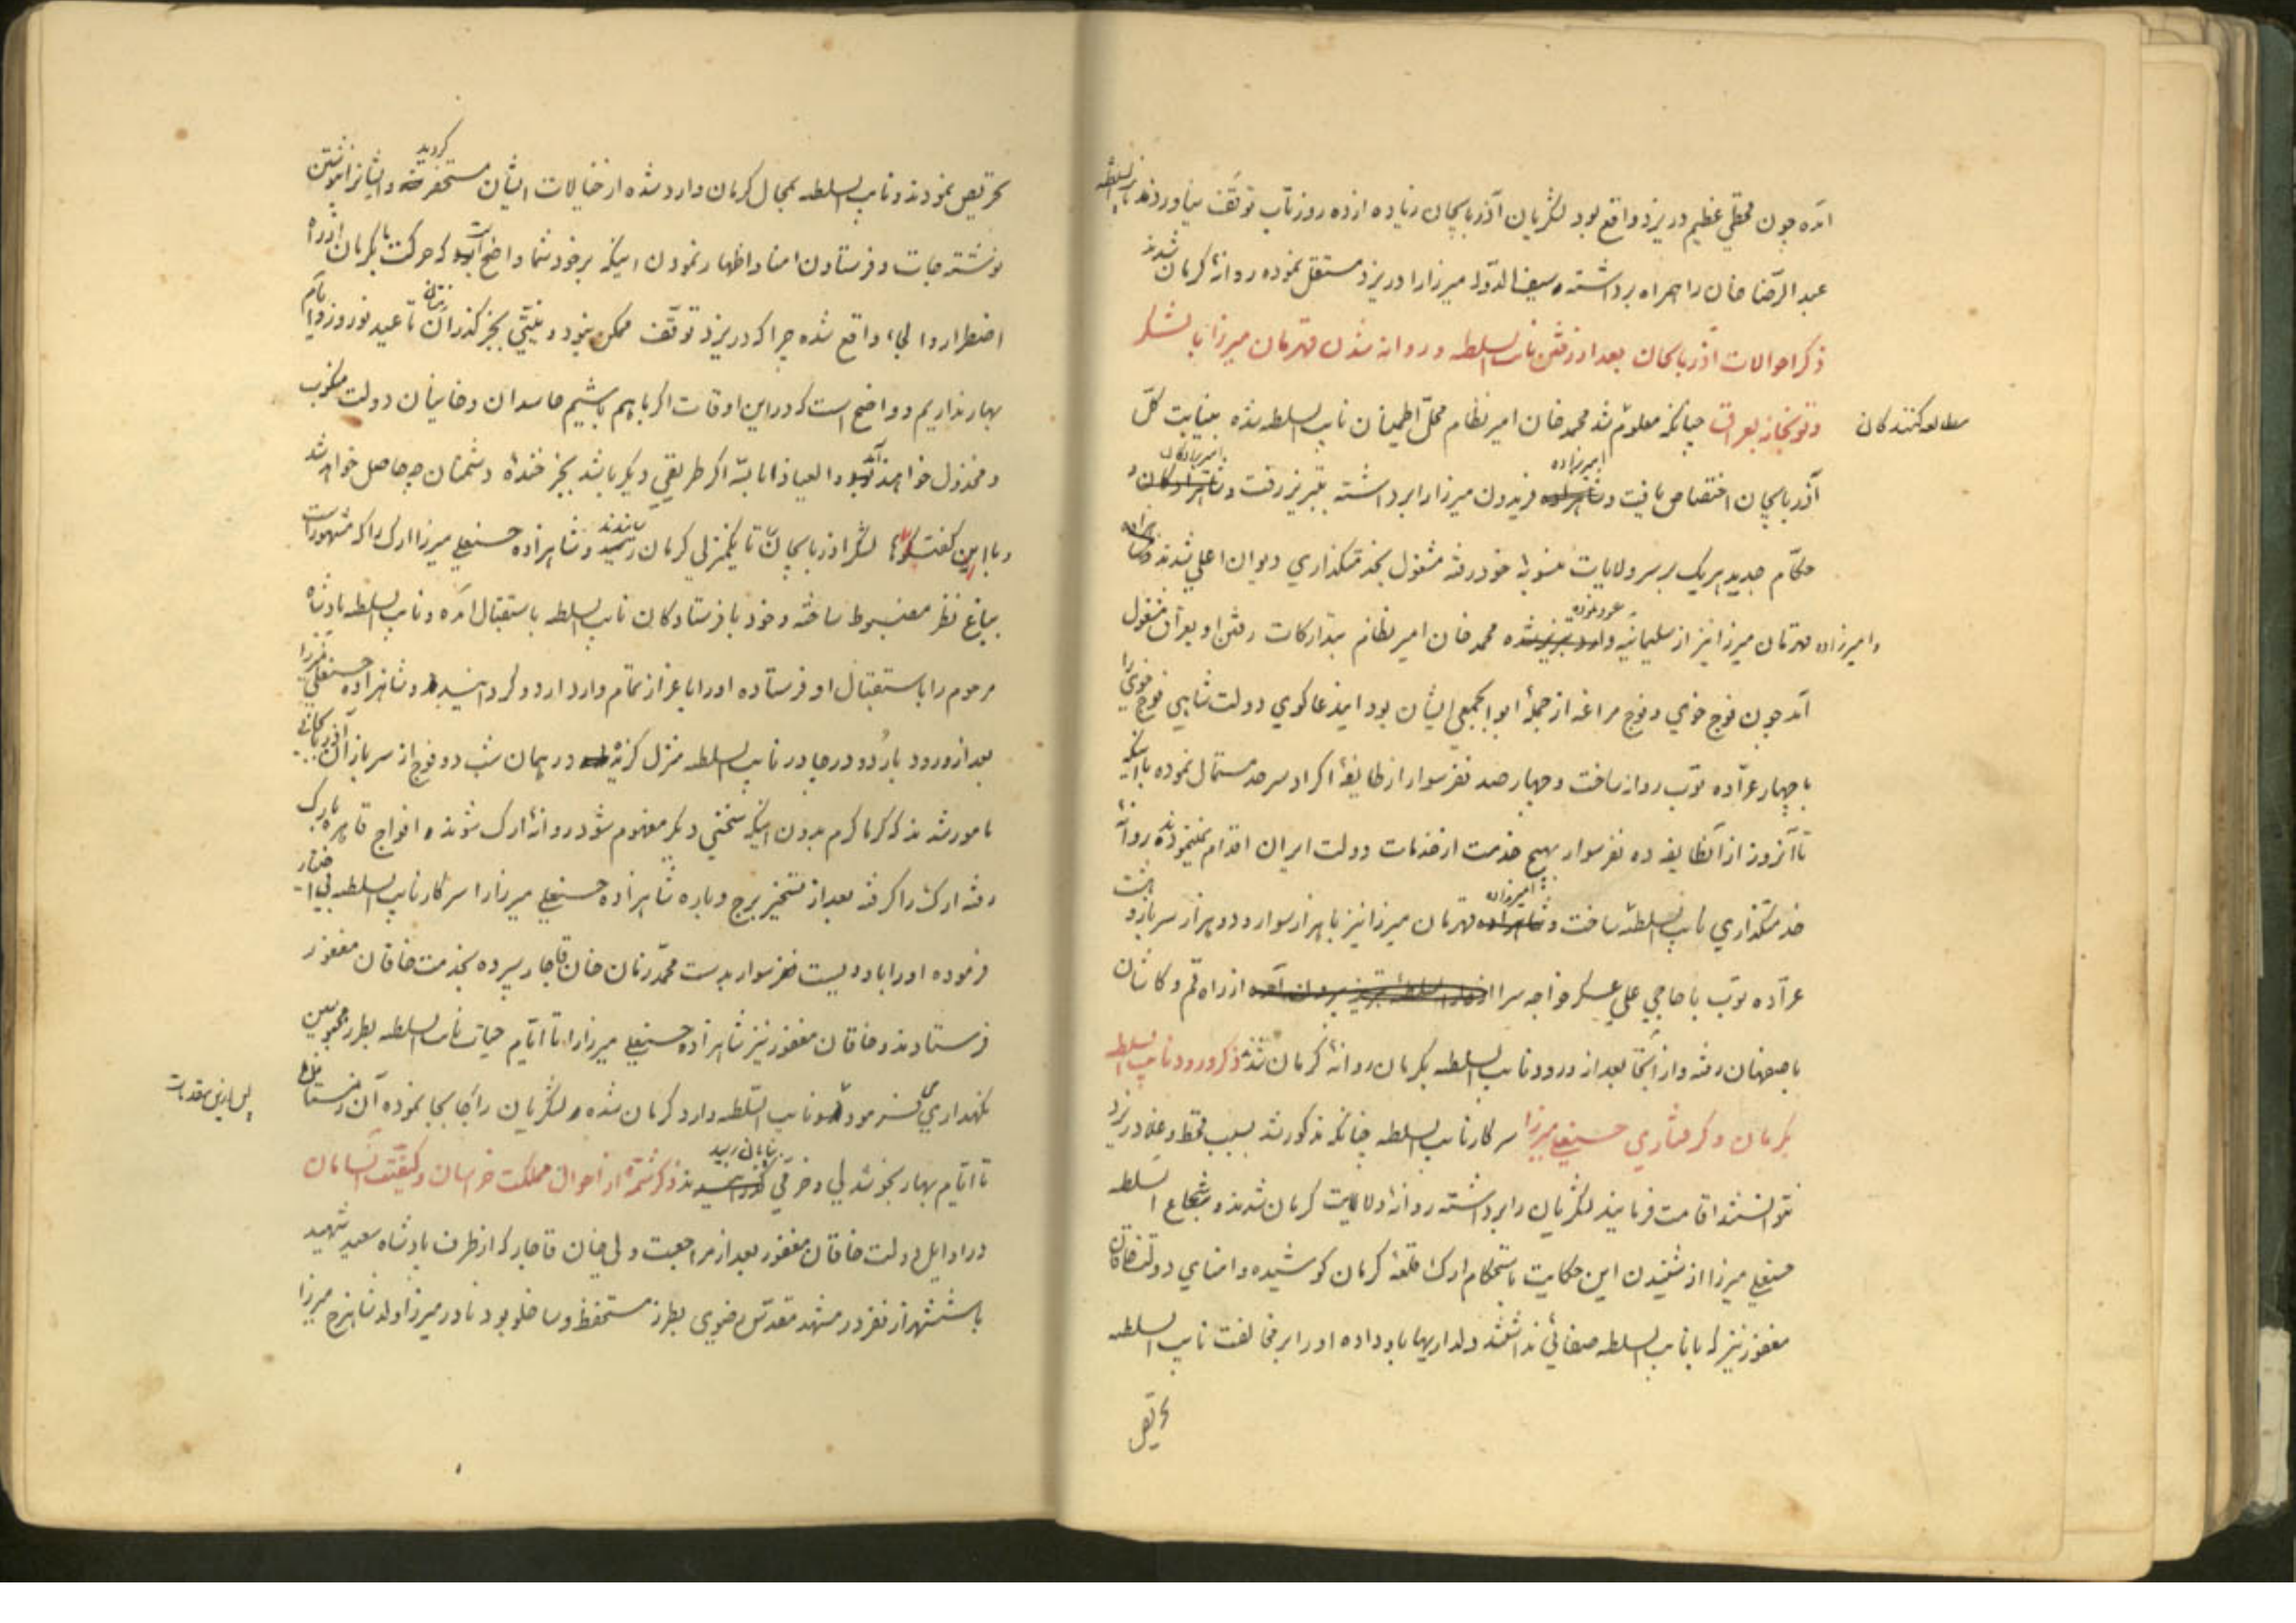 آمده چون قحطی عظیم در یزد واقع بود لشکریان آذربایجان زیاده از ده روز تاب توقف نیاوردند نایب السلطنه
عبدالرضا خان را همراه برداشته و سیف الدوله میرزا را در یزد مستقل نموده روانهٔ کرمان شدند
ذکر احوالات آذربایجان بعد از رفتن نایب السلطنه و روانه شدن قهرمان میرزا با لشکر
و توبخانه بعراق چنانکه معلوم شد محمد خان امیر نظام محل اطمینان نایب السلطنه شده بنیابت کل
مطالعه کنندکان
آذربایجان اختصاص یافت و شاهزاده امیرزاده فریدون میرزا را برداشته بتبریز رفت و شاهزادکان امیرزادکان و
حکام جدید هریک بر سر ولایات منسوبهٔ خود رفته مشغول بخدمتکذاری دیوان اعلی شدند
و امیرزاده قهرمان میرزا نیز از سلیمانیه وارد تبریز شده عود نموده محمد خان امیر نظام بتدارکات رفتن او بعراق مشغول
آمد چون فوج خوی و فوج مراغه از جملهٔ ابوابجمعی ایشان بود ایندعاکوی دولت شاهی فوج خوی را
با چهار عراده توپ روانه ساخت و چهار صد نفر سوار از طایفهٔ اکراد سرحد مستمال نموده با اینکه
تا آنروز از آنطایفه ده نفر سوار بهیچ خدمت از خدمات دولت ایران اقدام نمینمودند روانهٔ
خدمتکذاری نایب السلطنه ساخت و شاهزاده امیرزاده قهرمان میرزا نیز با هزار سوار و دو هزار سرباز و هشت
عراده توپ با حاجی علی عسکر خواجه سرا از دار السلطنه تبریز بیرون آمده از راه قم و کاشان
باصفهان رفته و از آنجا بعد از ورود نایب السلطنه بکرمان روانهٔ کرمان شد ذکر ورود نایب السلطنه
بکرمان و کرفتاری حسنعلی میرزا سرکار نایب السلطنه چنانکه مذکور شد بسبب قحط و غلا در یزد
نتوانستند اقامت فرمایند لشکریان را برداشته روانهٔ ولایت کرمان شدند و شجاع السلطنه
حسنعلی میرزا از شنیدن این حکایت باستحکام ارک و قلعهٔ کرمان کوشیده و امنای دولت خاقان
مغفور نیز که با نایب السلطنه صفائی نداشتند دلداریها باو داده او را بر مخالفت نایب السلطنه
تحریص
تحریص نمودند و نایب السلطنه بمحال کرمان وارد شده از خیالات ایشان مستحضر کردید و ایشانرا بنوشتن
نوشته جات و فرستادن امنا و اظهار نمودن اینکه بر خود شما واضح است که حرکت ما بکرمان از راه
اضطرار و الجاء واقع شده چرا که در یزد توقف ممکن نبود و نیتی بجز کذران زمستان تا عید نوروز و ایام
بهار نداریم و واضح است که در این اوقات اکر باهم باشیم حاسدان و خاینان دولت منکوب
و مخذول خواهند شد و العیاذ بالله اکر طریقی دیکر باشد بجز خندهٔ دشمنان چه حاصل خواهد شد
و با این کفتکوها لشکر آذربایجان تا یکمنزلی کرمان رسیدند و شاهزاده حسنعلی میرزا ارک را که مشهور است
بباغ نظر مضبوط ساخته و خود با فرستادکان نایب السلطنه باستقبال آمده و نایب السلطنه پادشاه
مرحوم را باستقبال او فرستاده او را با عزاز تمام وارد اردو کردانیدند و شاهزاده حسنعلی میرزا
بعد از ورود باردو در چادر نایب السلطنه منزل کزیده در همان شب دو فوج از سرباز آذربایجانی
مامور شدند که کرماکرم بدون اینکه سخنی دیکر مفهوم شود روانهٔ ارک شوند و افواج قاهره بارک
رفته ارک را کرفته بعد از تسخیر برج و باره شاهزاده حسنعلی میرزا را سرکار نایب السلطنه بی اختیار
فرموده او را با دویست نفر سوار بدست محمد زمان خان قاجار سپرده بخدمت خاقان مغفور
فرستادند و خاقان مغفور نیز شاهزاده حسنعلی میرزا را تا ایام حیات نایب السلطنه بطرز محبوسین
نکهداری فرمود و نایب السلطنه وارد کرمان شده و لشکریان را جابجا نموده آن زمستان را
پس از این مقدمات
تا ایام بهار بخوشدلی و خرمی بپایان رسید ذکر شمهٔ از احوال مملکت خراسان و کیفیت آنسامان
در اوایل دولت خاقان مغفور بعد از مراجعت ولی خان قاجار که از طرف پادشاه سعید شهید
با ششهزار نفر در مشهد مقدس رضوی بطرز مستحفظ و ساخلو بود نادر میرزا ولد شاهرخ میرزا